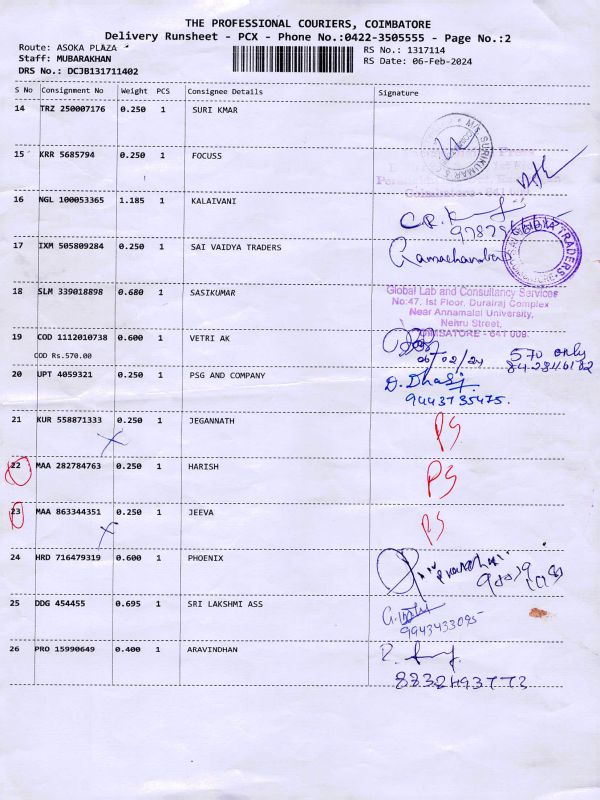 THE PROFESSIONAL COURIERS, COIMBATORE
Delivery Runsheet - PCX - Phone No.:0422-3505555 - Page No.:2
Route: ASOKA PLAZA
RS No.: 1317114
Staff: MUBARAKHAN
RS Date: 06-Feb-2024
DRS No.: DCJB131711402
S No Consignment No Weight PCS Consignee Details Signature
14 TRZ 250007176 0.250 1 SURI KMAR
15 KRR 5685794 0.250 1 FOCUSS
16 NGL 100053365 1.185 1 KALAIVANI
17 IXM 505809284 0.250 1 SAI VAIDYA TRADERS
18 SLM 339018898 0.680 1 SASIKUMAR
Global Lab and Consultancy Services
No:47, Ist Floor, Durairaj Complex
Near Annamalai University,
Nehru Street,
COIMBATORE - 641 009.
19 COD 1112010738 0.600 1 VETRI AK
06/02/24 570 only
COD Rs.570.00
20 UPT 4059321 0.250 1 PSG AND COMPANY D. Dhasj
9443735475.
21 KUR 558871333 0.250 1 JEGANNATH PS
22 MAA 282784763 0.250 1 HARISH PS
23 MAA 863344351 0.250 1 JEEVA PS
24 HRD 716479319 0.600 1 PHOENIX
25 DDG 454455 0.695 1 SRI LAKSHMI ASS
9943433095
26 PRO 15990649 0.400 1 ARAVINDHAN